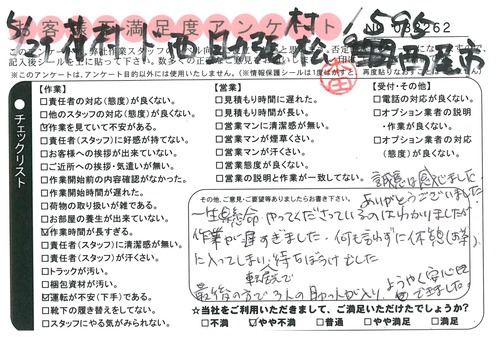 お客様満足度アンケート
NO 083262
記入後シールを上に貼って下さい。
※このアンケートは、アンケート目的以外には一切使用しません。
チェックリスト
【作業】
□責任者の対応(態度)が良くない。
□他のスタッフの対応(態度)が良くない。
☑作業を見ていて不安がある。
□責任者(スタッフ)に好感が持てない。
□お客様への挨拶が出来ていない。
□ご近所への挨拶・気遣いが無い。
□作業開始前の内容確認がなかった。
□作業開始時間が遅れた。
□荷物の取り扱いが雑である。
□お部屋の養生が出来ていない。
☑作業時間が長すぎる。
□責任者(スタッフ)に清潔感が無い。
□責任者(スタッフ)が汗くさい。
□トラックが汚い。
□梱包資材が汚い。
☑運転が不安(下手)である。
□靴下の履き替えをしてない。
□スタッフにやる気がみられない。
【営業】
□見積もり時間に遅れた。
□見積もり時間が長い。
□営業マンに清潔感が無い。
□営業マンが煙草くさい。
□営業マンが汗くさい。
□営業態度が良くない。
□営業の説明と作業が一致してない。
【受付・その他】
□電話の対応が良くない。
□オプション業者の説明
・作業が良くない。
□オプション業者の対応
(態度)が良くない。
誠意は感じました
ありがとうございました
その他、ご意見・ご要望等ありましたらお書き下さい。
一生懸命やってくださっているのはわかりましたが
作業が遅すぎました。何も言わずに休憩(お茶)
に入ってしまい待ちぼうけでした
最後の方で3人の助っ人が入り、ようやく安心
できました。
☆当社をご利用いただきまして、ご満足いただけたでしょうか?
□不満 ☑やや不満 □普通 □やや満足 □満足